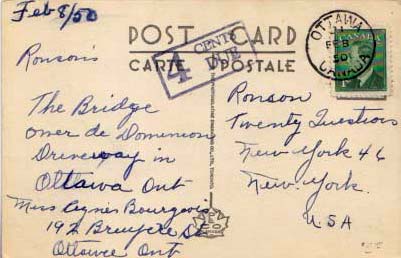 Feb 8/50
POST CARD
CARTE POSTALE
4 CENTS DUE
OTTAWA
FEB 8
50
CANADA
CANADA
Ronson's
The Bridge
over de Dominion
Driveway in
Ottawa Ont
Miss Agnes Bourgeois
192 Bruyere St
Ottawa Ont
Ronson
Twenty Questions
New York 46
New. York.
USA